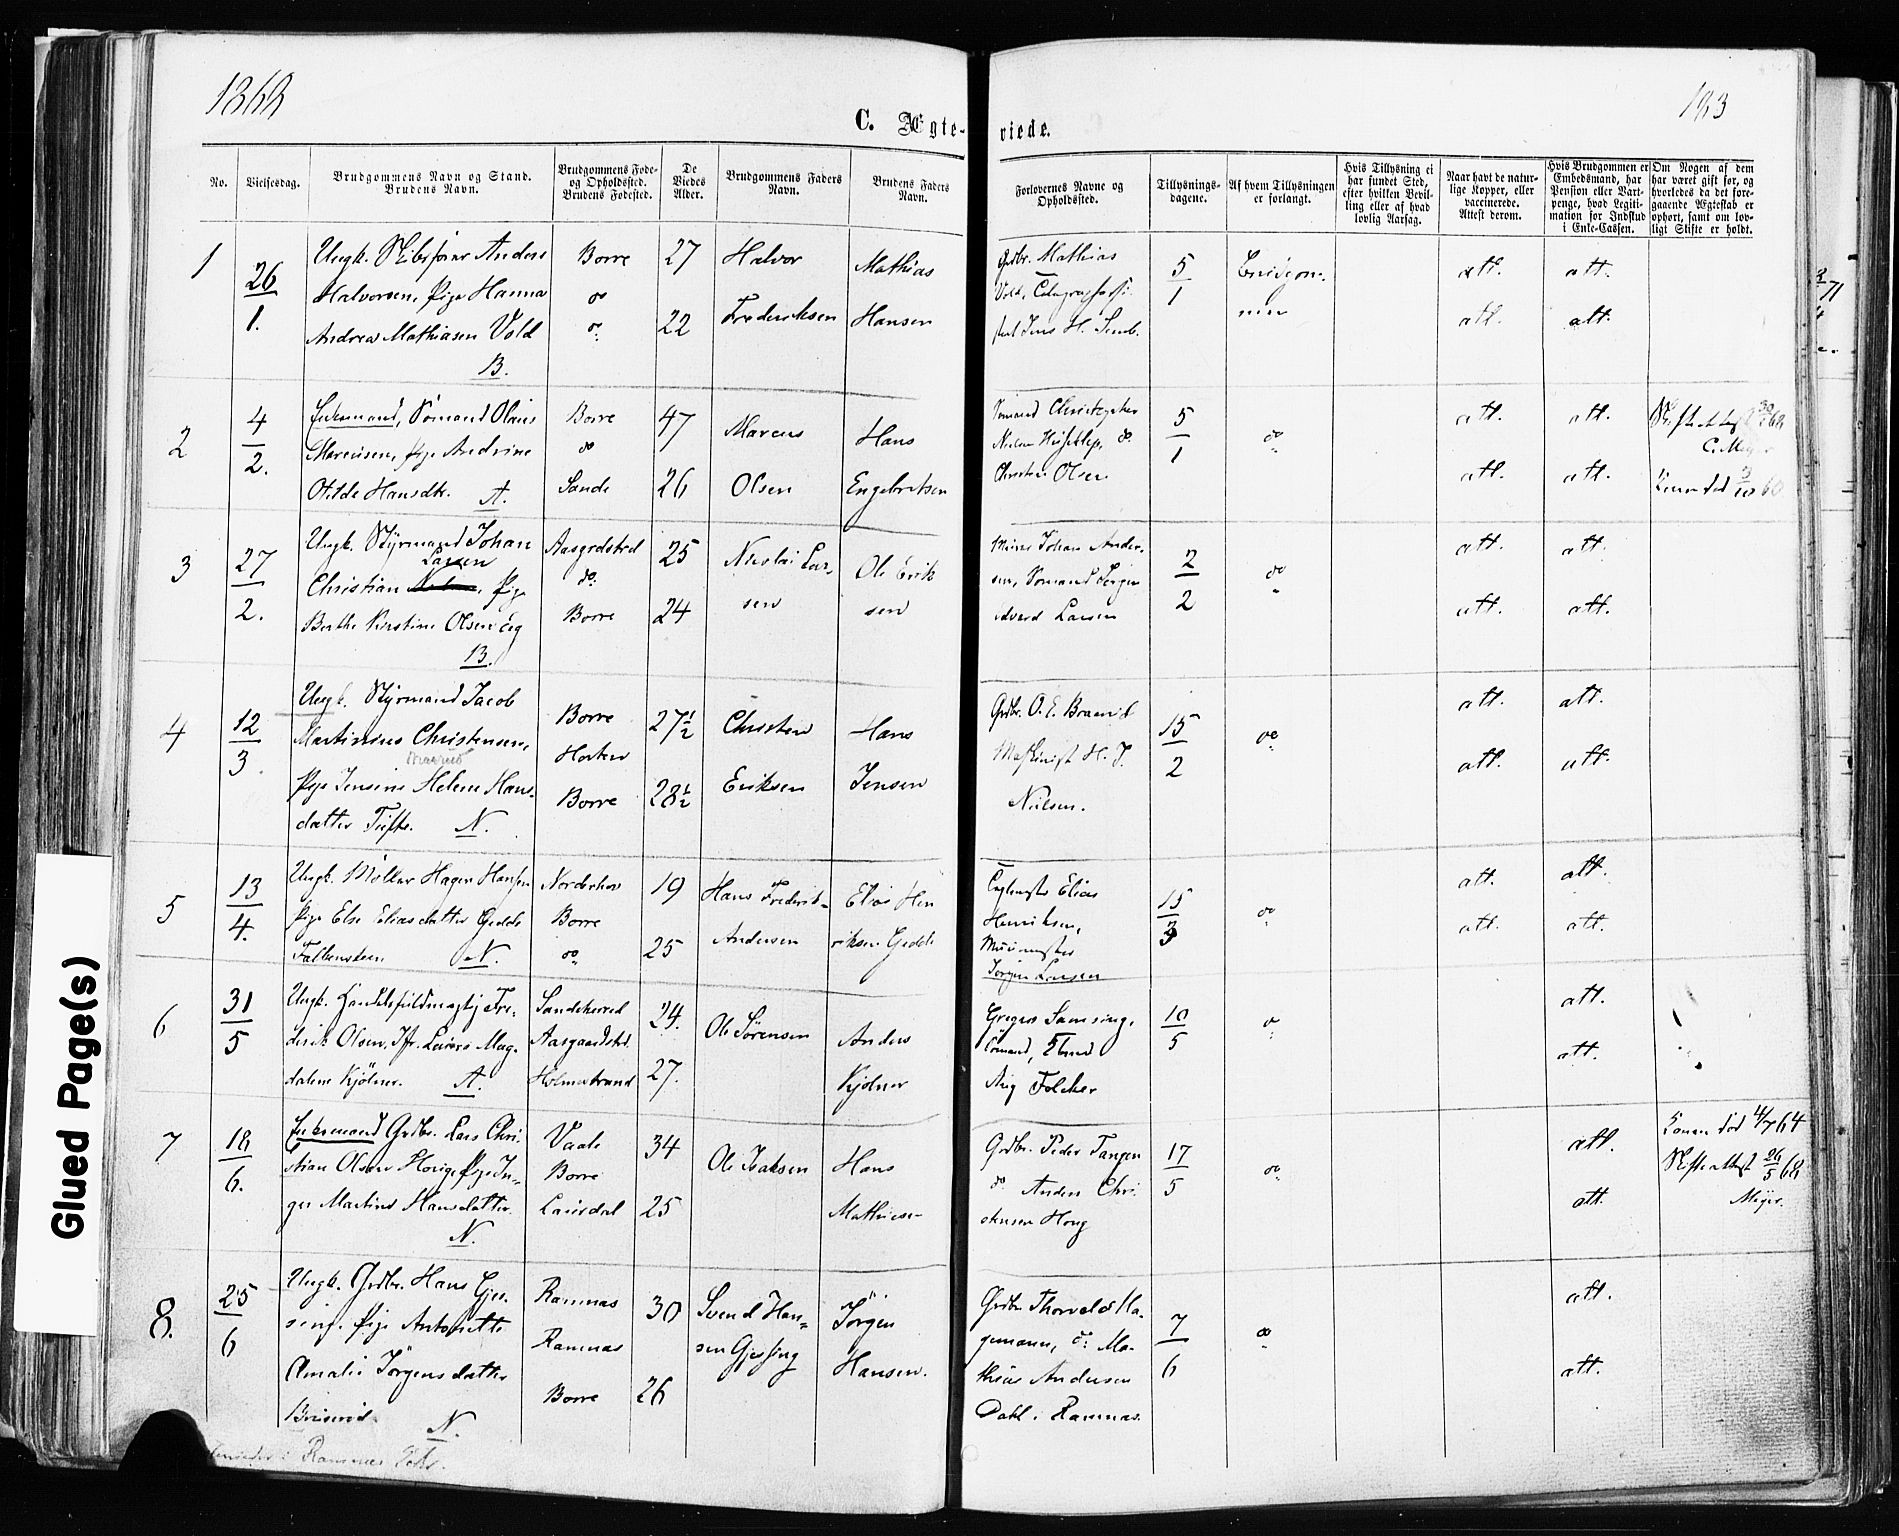 1868
183
C. Ægte-
viede.
No.
Vielsesdag.
Brudgommens Navn og Stand.
Brudens Navn.
Brudgommens Føde-
og Opholdssted.
Brudens Fødested.
De
Viedes
Alder.
Brudgommens Faders
Navn.
Brudens Faders
Navn.
Forlovernes Navne og
Opholdssted.
Tillysnings-
dagene.
Af hvem Tillysningen
er forlangt.
Hvis Tillysning ei
har fundet Sted,
efter hvilken Bevil-
ling eller af hvad
lovlig Aarsag.
Naar havt de natur-
lige Kopper, eller
vaccinerede.
Attest derom.
Hvis Brudgommen er
Embedsmand, har
Pension eller Vart-
penge, hvad Legiti-
mation for Indskud
i Enke-Cassen.
Om Nogen af dem
har været gift før, og
hvorledes da det fore-
gaaende Ægteskab er
ophørt, samt om lov-
ligt Skifte er holdt.
1
26
1.
Ungk. Skibsfører Anders
Halvorsen, Pige Hanna
Andrea Mathiasen Vold
B.
Borre
do
do
27
22
Halvor
Frederiksen
Mathias
Hansen
Grdbr. Mathias
Vold,
Jens H.
5
1
att. att.
att. att.
2
4
2.
Enkemand, Sømand Olaus
Marcusen, Pige Andrine
Otilde Hansdtr. A.
Borre
do
Sande
47
26
Marcus
Olsen
Hans
Engebretsen
Sømand Christopher
Nielsen do
Christian Olsen
5
1
do
att. att.
att. att.
C. Meyer
Konen død
3
27
2.
Ungk. Styrmand Johan
Larsen
Christian Pige
Berthe Kirstine Olsen Eeg
B.
Aasgrdstrd
do.
Borre
25
24
Nicolai Lar-
sen
Ole Erik
sen
Murer Johan Ander-
sen, Sømand Jørgen
Edvard Larsen
2
2
do
att. att.
att. att.
4
12
3.
Ungk. Styrmand Jacob
Martinius Christensen,
Pige Jensine Helene Hans-
datter Tufte. N.
Borre
Horten
Borre
27½
28½
Christen
Eriksen
Hans
Jensen
Grdbr. O. E. Braarud
Maskinist H. J.
Nielsen.
15
2
do
att. att.
att. att.
5
13
4.
Ungk. Møller Hagen Hansen
Pige Else Eliasdatter Gedde
Falkensteen N.
Norderhov
Borre
do
19
25
Hans Frederik-
Andersen
Elias Hen
riksen Gedde
Elias
Henriksen,
Muurmester
Jørgen Larsen
15
3
do
att. att.
att. att.
6
31
5
Ungk. Handelsfuldmægtig Fre-
derik Olsen, Jfr. Laura Mag-
dalene Kjølner. A.
Sandeherred
Aasgaardstrd.
Holmestrand
24.
27.
Ole Sørensen
Anders
Kjølner
Gregers Samsing,
Aug Folcker
10
5
do
att.
att.
7
18
6.
Enkemand Grdbr. Lars Chri-
stian Olsen Horige, Pige In-
ger Martine Hansdatter.
N.
Vaale
Borre
Laurdal
34
25
Ole Isaksen
Hans
Mathiesen
Grdbr. Peder Tangen
do Anders Chri-
stensen Hong
17
5
do
att.
att.
Konen død 4/7 64
Skifteattest 26/5 68
Meyer.
8.
25
6
Ungk. Grdbr. Hans Gjes-
sing. Pige Antonette
Amalie Jørgensdatter
N.
Ramnæs
Ramnæs
Borre
30
26
Svend Han-
sen Gjessing
Jørgen
Hansen.
Grdbr. Thorvald Ha-
gemann, do. Ma-
thias Andersen
Dahl i Ramnæs.
7
6
do
att.
att.
i Ramnæs
Glued Page(s)